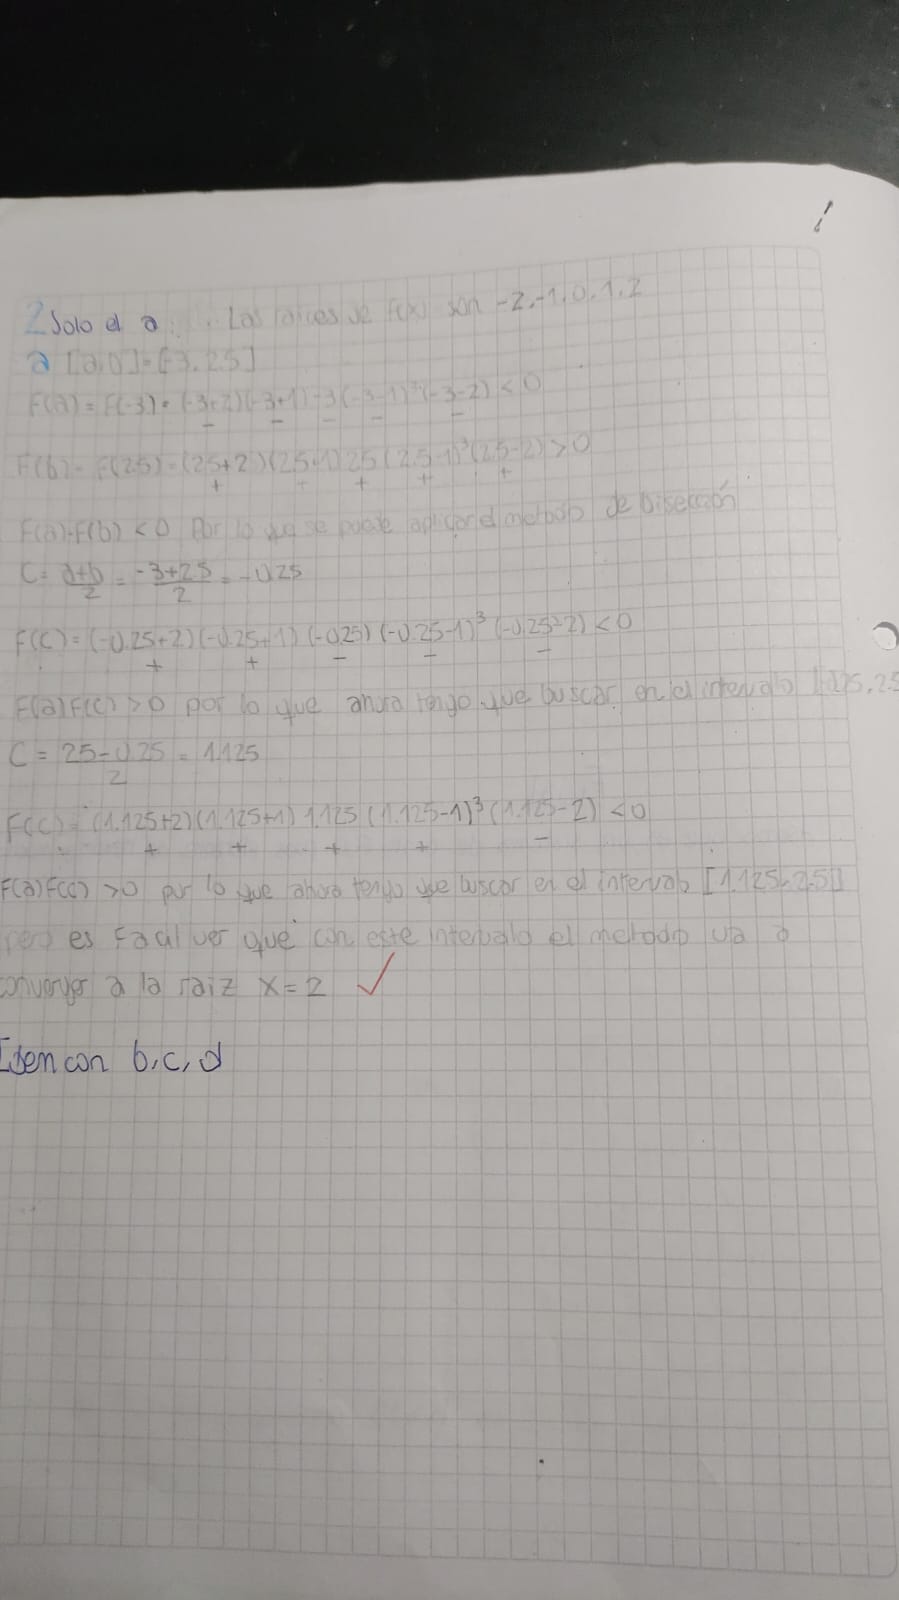 2 Solo el a. Las raíces de f(x) son -2,-1,0,1,2
a [a,b]=[-3,2.5]
F(a)=F(-3)=(-3+2)(-3+1)-3(-3-1)³(-3-2)<0
- - - - -
F(b)=F(2.5)=(2.5+2)(2.5+1)2.5(2.5-1)³(2.5-2)>0
+ + + + +
F(a)·F(b)<0 Por lo que se puede aplicar el método de Bisección
C= a+b/2 = -3+2.5/2 = -0.25
F(c)=(-0.25+2)(-0.25+1)(-0.25)(-0.25-1)³(-0.25-2)<0
+ + - - -
F(a)F(c)>0 por lo que ahora tengo que buscar en el intervalo [-0.25,2.5
C= 2.5-0.25/2 = 1.125
F(c)=(1.125+2)(1.125+1)1.125(1.125-1)³(1.125-2)<0
+ + + + -
F(a)F(c)>0 por lo que ahora tengo que buscar en el intervalo [1.125,2.5]
pero es facil ver que con este intervalo el metodo va a
converger a la raiz x=2 ✓
Idem con b,c,d